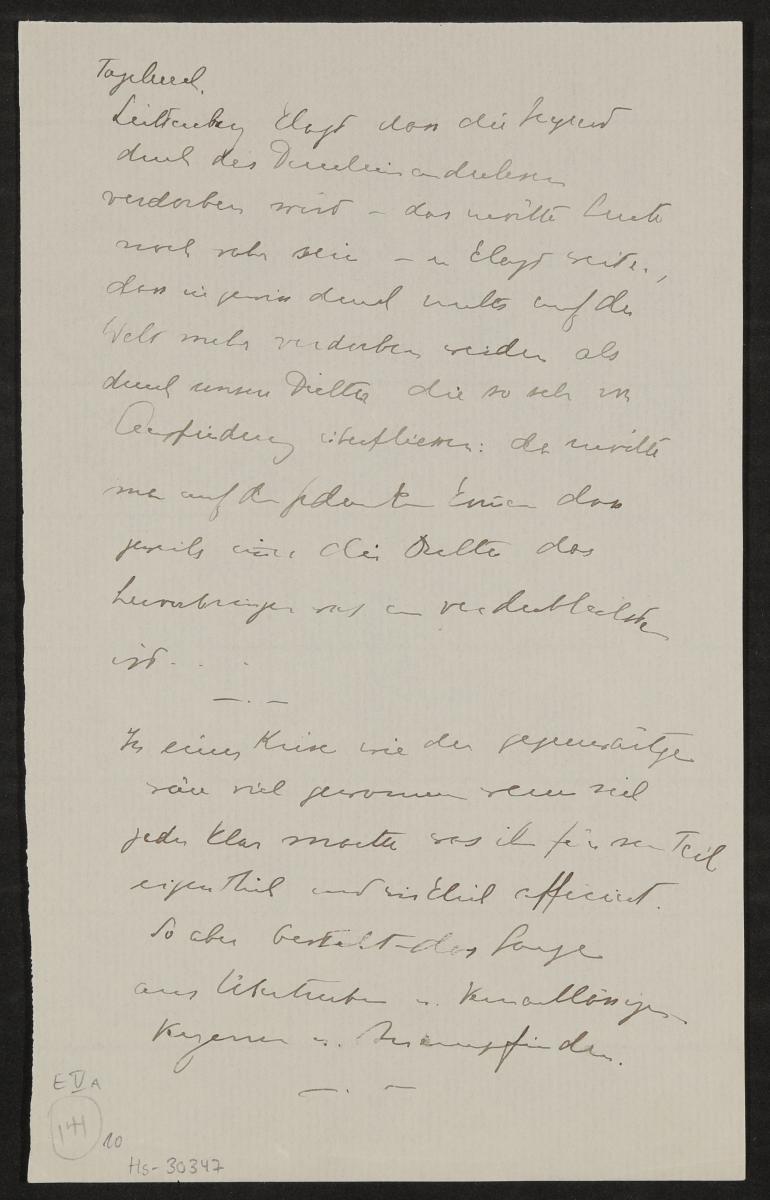 Tagebuch.
Lichtenberg klagt dass die Jugend
durch das Durcheinanderlesen
verdorben wird – das möchte heute
noch wahr sein – er klagt weiter,
dass wir gewiss durch nichts auf der
Welt mehr verdorben werden als
durch unsere Dichter die so sehr von
Empfindung überfliessen: da möchte
man auf den Gedanken kommen dass
jeweils immer die Dichter das
hervorbringen was am verderblichsten
ist . . .
In einer Krise wie der gegenwärtigen
wäre viel gewonnen wenn sich
jeder klar machte was ihn für sein Teil
eigentlich und wirklich afficiert.
So aber besteht das Ganze
aus Übertreiben u. Vernachlässigen
u.
E V A
141
10
Hs-30347